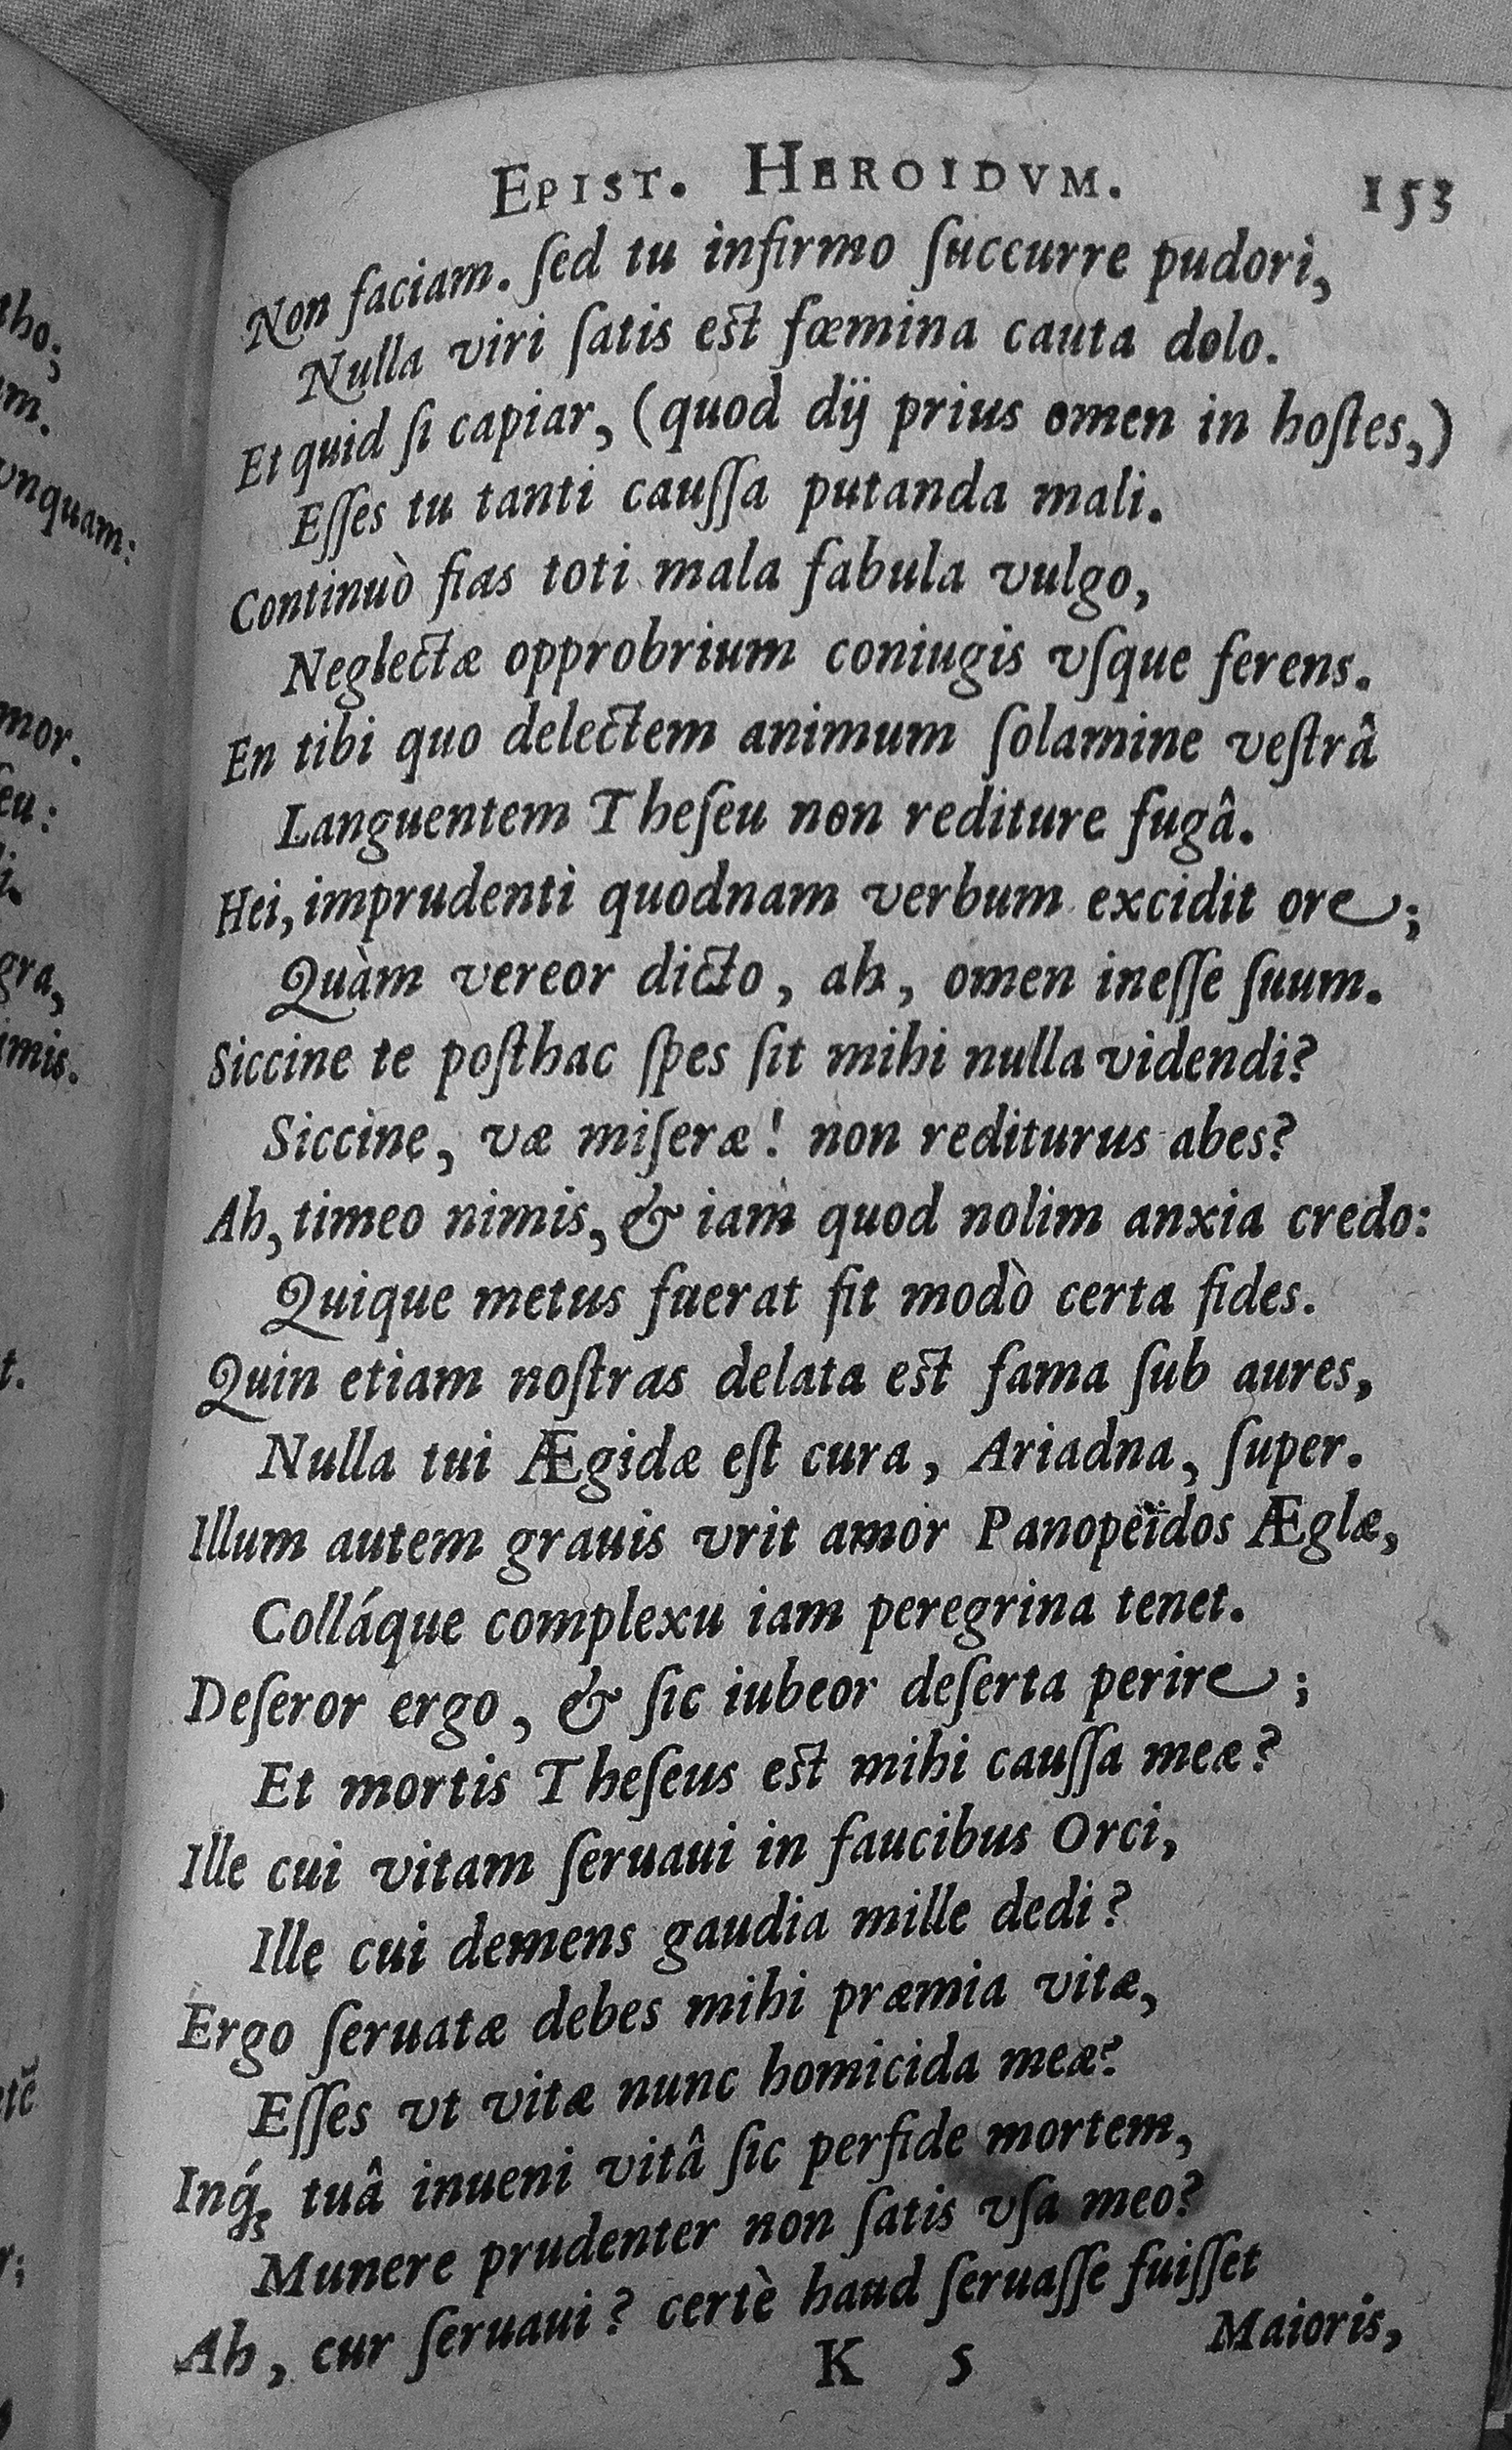 EPIST. HEROIDVM. 153
Non faciam. ſed tu infirmo ſuccurre pudori,
Nulla viri ſatis eſt fœmina cauta dolo.
Et quid ſi capiar, (quod dij prius omen in hoſtes,)
Eſſes tu tanti cauſſa putanda mali.
Continuò fias toti mala fabula vulgo,
Neglectæ opprobrium coniugis vſque ferens.
En tibi quo delectem animum ſolamine veſtrâ
Languentem Theſeu non rediture fugâ.
Hei, imprudenti quodnam verbum excidit ore;
Quàm vereor dicto, ah, omen ineſſe ſuum.
Siccine te poſthac ſpes ſit mihi nulla videndi?
Siccine, væ miſeræ! non rediturus abes?
Ah, timeo nimis, & iam quod nolim anxia credo:
Quique metus fuerat fit modò certa fides.
Quin etiam noſtras delata eſt fama ſub aures,
Nulla tui Ægidæ eſt cura, Ariadna, ſuper.
Illum autem grauis vrit amor Panopëidos Æglæ,
Colláque complexu iam peregrina tenet.
Deſeror ergo, & ſic iubeor deſerta perire;
Et mortis Theſeus eſt mihi cauſſa meæ?
Ille cui vitam ſeruaui in faucibus Orci,
Ille cui demens gaudia mille dedi?
Ergo ſeruatæ debes mihi præmia vitæ,
Eſſes vt vitæ nunc homicida meæ?
Inq́ꝫ tuâ inueni vitâ ſic perfide mortem,
Munere prudenter non ſatis vſa meo?
Ah, cur ſeruaui? certè haud ſeruaſſe fuiſſet
K 5 Maioris,
tho;
m.
vnquam:
mor.
ſeu:
li.
gra,
imis.
t.
tē
r;